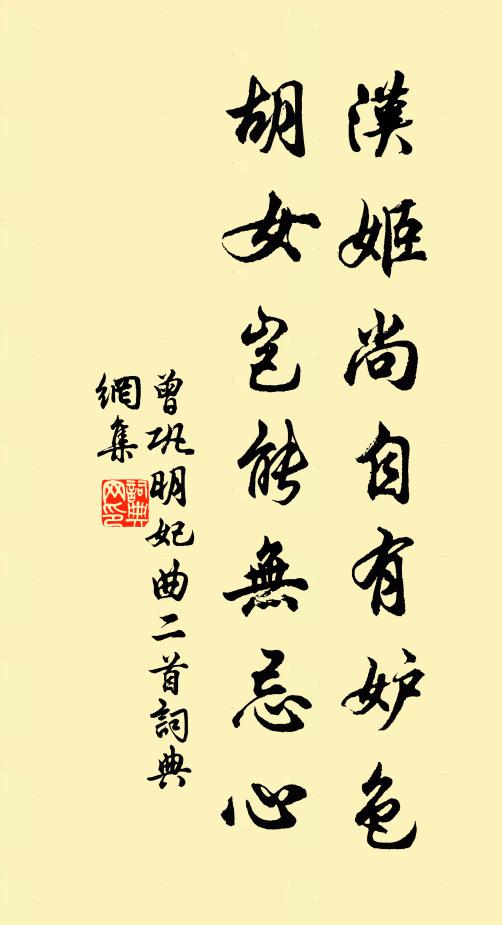 漢姬尚自有妒色
胡女岂能無忌心
曾巩明妃曲二首詞典
網集
詞典
网印